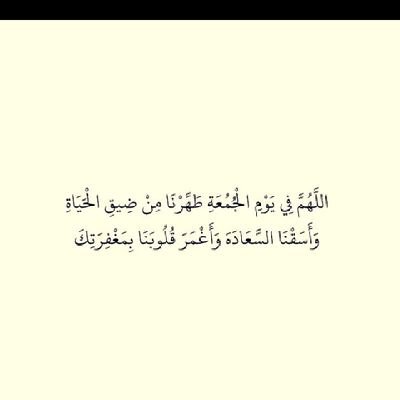 اللَّهُمَّ فِي يَوْمِ الْجُمُعَةِ طَهِّرْنَا مِنْ ضِيقِ الْحَيَاةِ
وَأَسَقْنَا السَّعَادَةَ وَأَغْمَرَ قُلُوبَنَا بِمَغْفِرَتِكَ